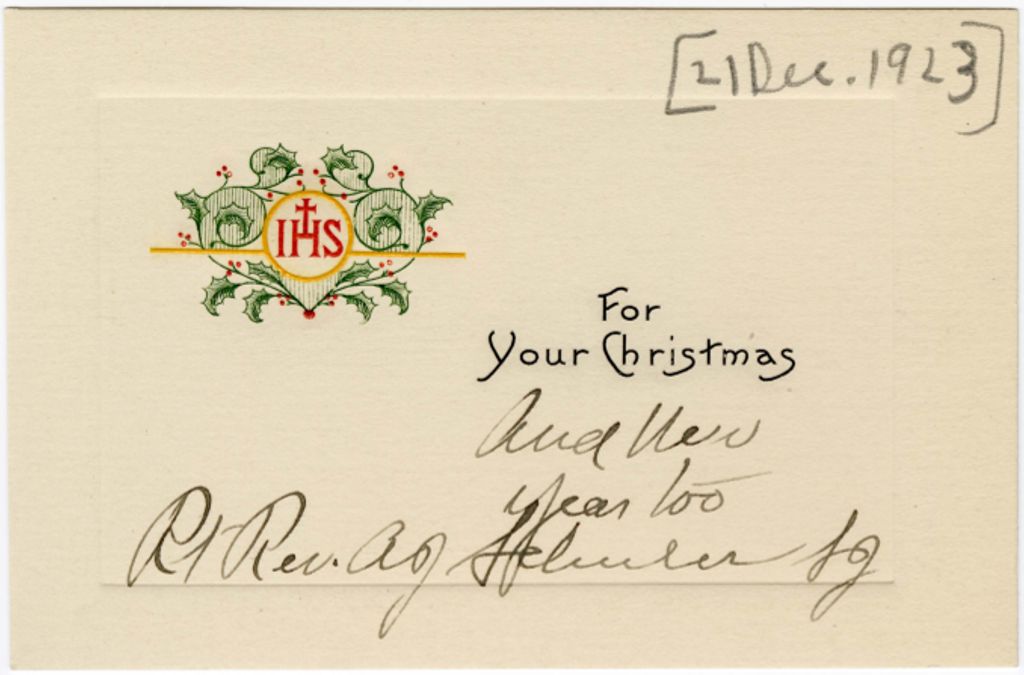 [21 Dec. 1923]
IHS
For
Your Christmas
And New
Year too
Rt Rev. A J